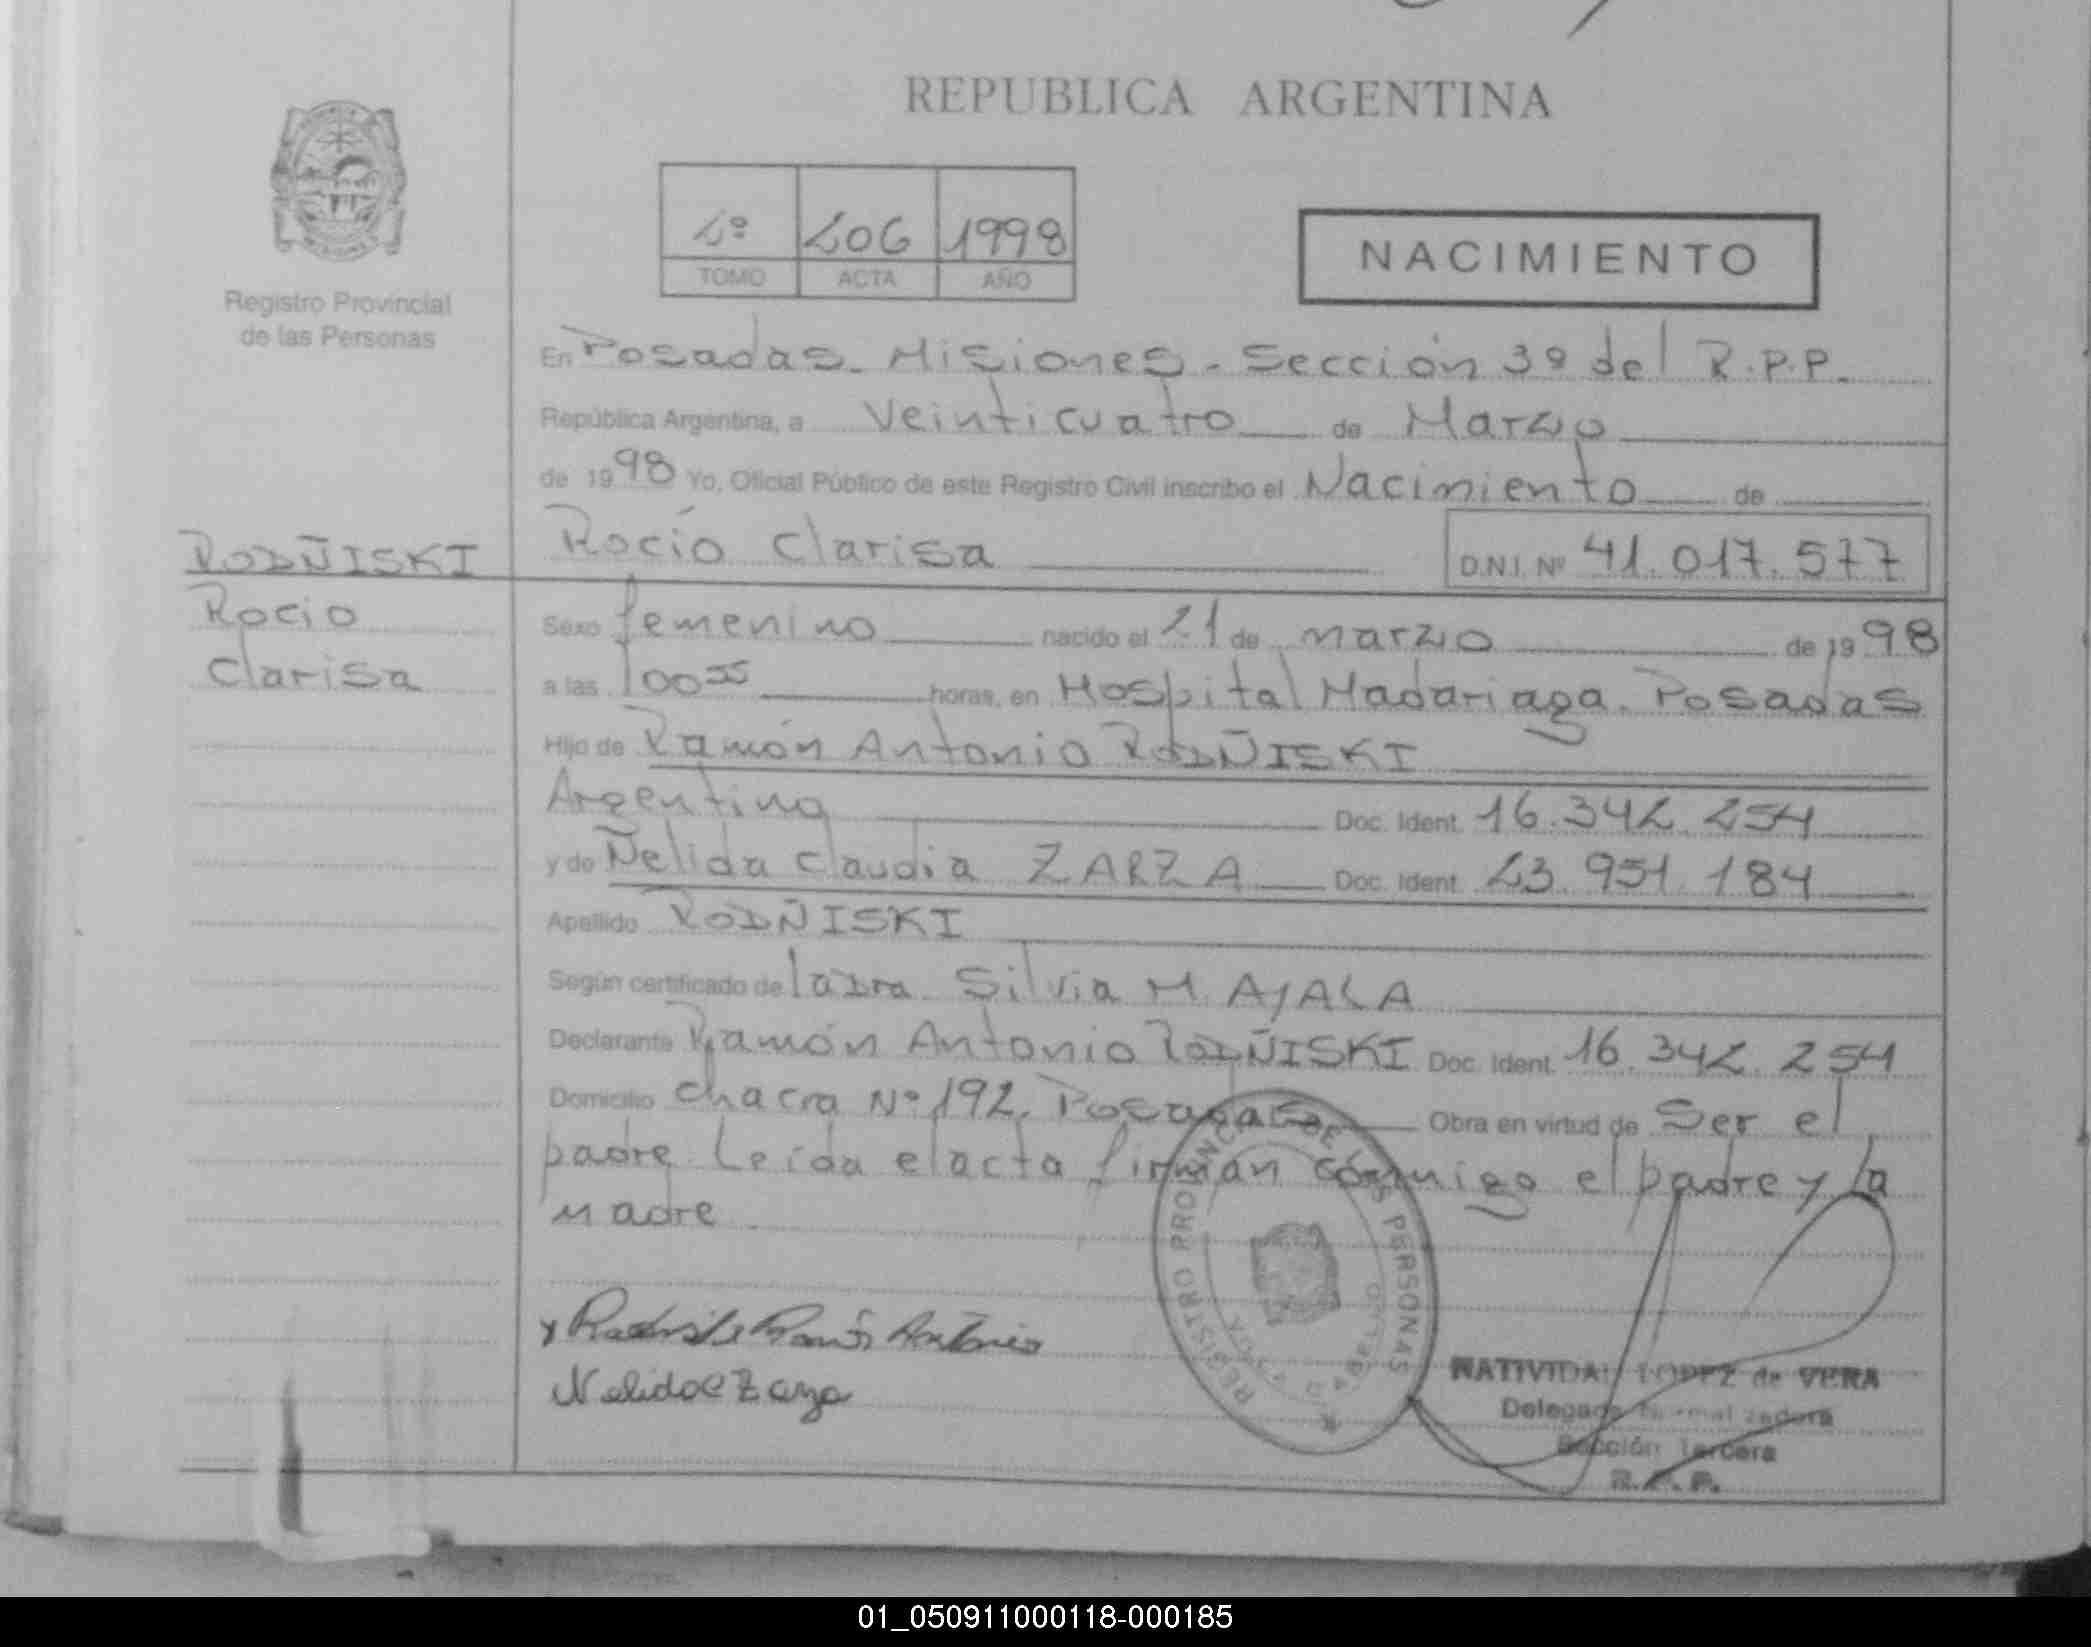 REPUBLICA ARGENTINA
2º 206 1998
TOMO ACTA AÑO
NACIMIENTO
Registro Provincial
de las Personas
En Posadas. Misiones. Sección 3º del R.P.P.
República Argentina, a Veinticuatro de Marzo
de 1998 Yo, Oficial Público de este Registro Civil inscribo el Nacimiento de
RODÑISKI Rocío Clarisa D.N.I. Nº 41.017.577
Rocio
Clarisa
Sexo femenino nacido el 21 de marzo de 1998
a las 10055 horas, en Hospital Madariaga. Posadas
Hijo de Ramón Antonio RODÑISKI
Argentina Doc. Ident. 16.342.254
y de Ñelida Claudia ZARZA Doc. Ident. 23.951.184
Apellido RODÑISKI
Según certificado de la Dra. Silvia M. AYALA
Declarante Ramón Antonio RODÑISKI Doc. Ident. 16.342.254
Domicilio Chacra Nº 192. Posadas Obra en virtud de Ser el
padre. Leída el acta firman conmigo el padre y la
madre
REGISTRO PROVINCIAL DE LAS PERSONAS
Ramón Antonio
Nelida C Zarza
NATIVIDAD LOPEZ de VERA
Delegada Normalizadora
Sección Tercera
R.P.P.
01_050911000118-000185